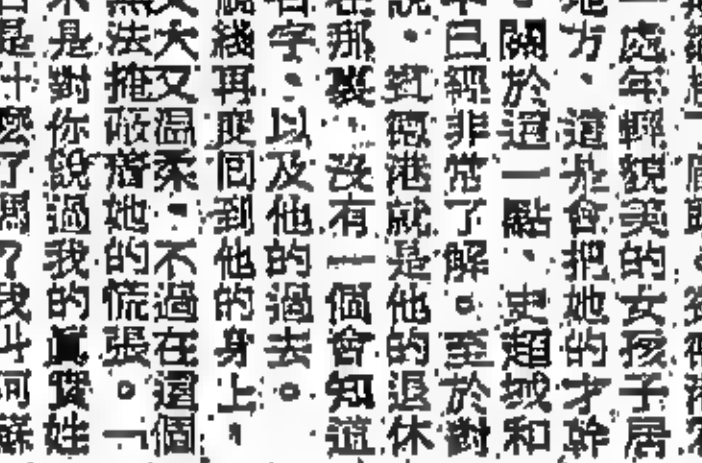 處年輕貌美的女孩子居
方,這是會把她的才幹
關於這一點,史超域和
已經非常了解。至於對
德港就是他的退休
在那裏,沒有一個會知道
名字,以及他的過去。
綫再度回到他的身上,
大又溫柔,不過在這個
無法掩蔽着她的慌張。一
不是對你說過我的眞實姓
是什麼了嗎?我叫阿蘇